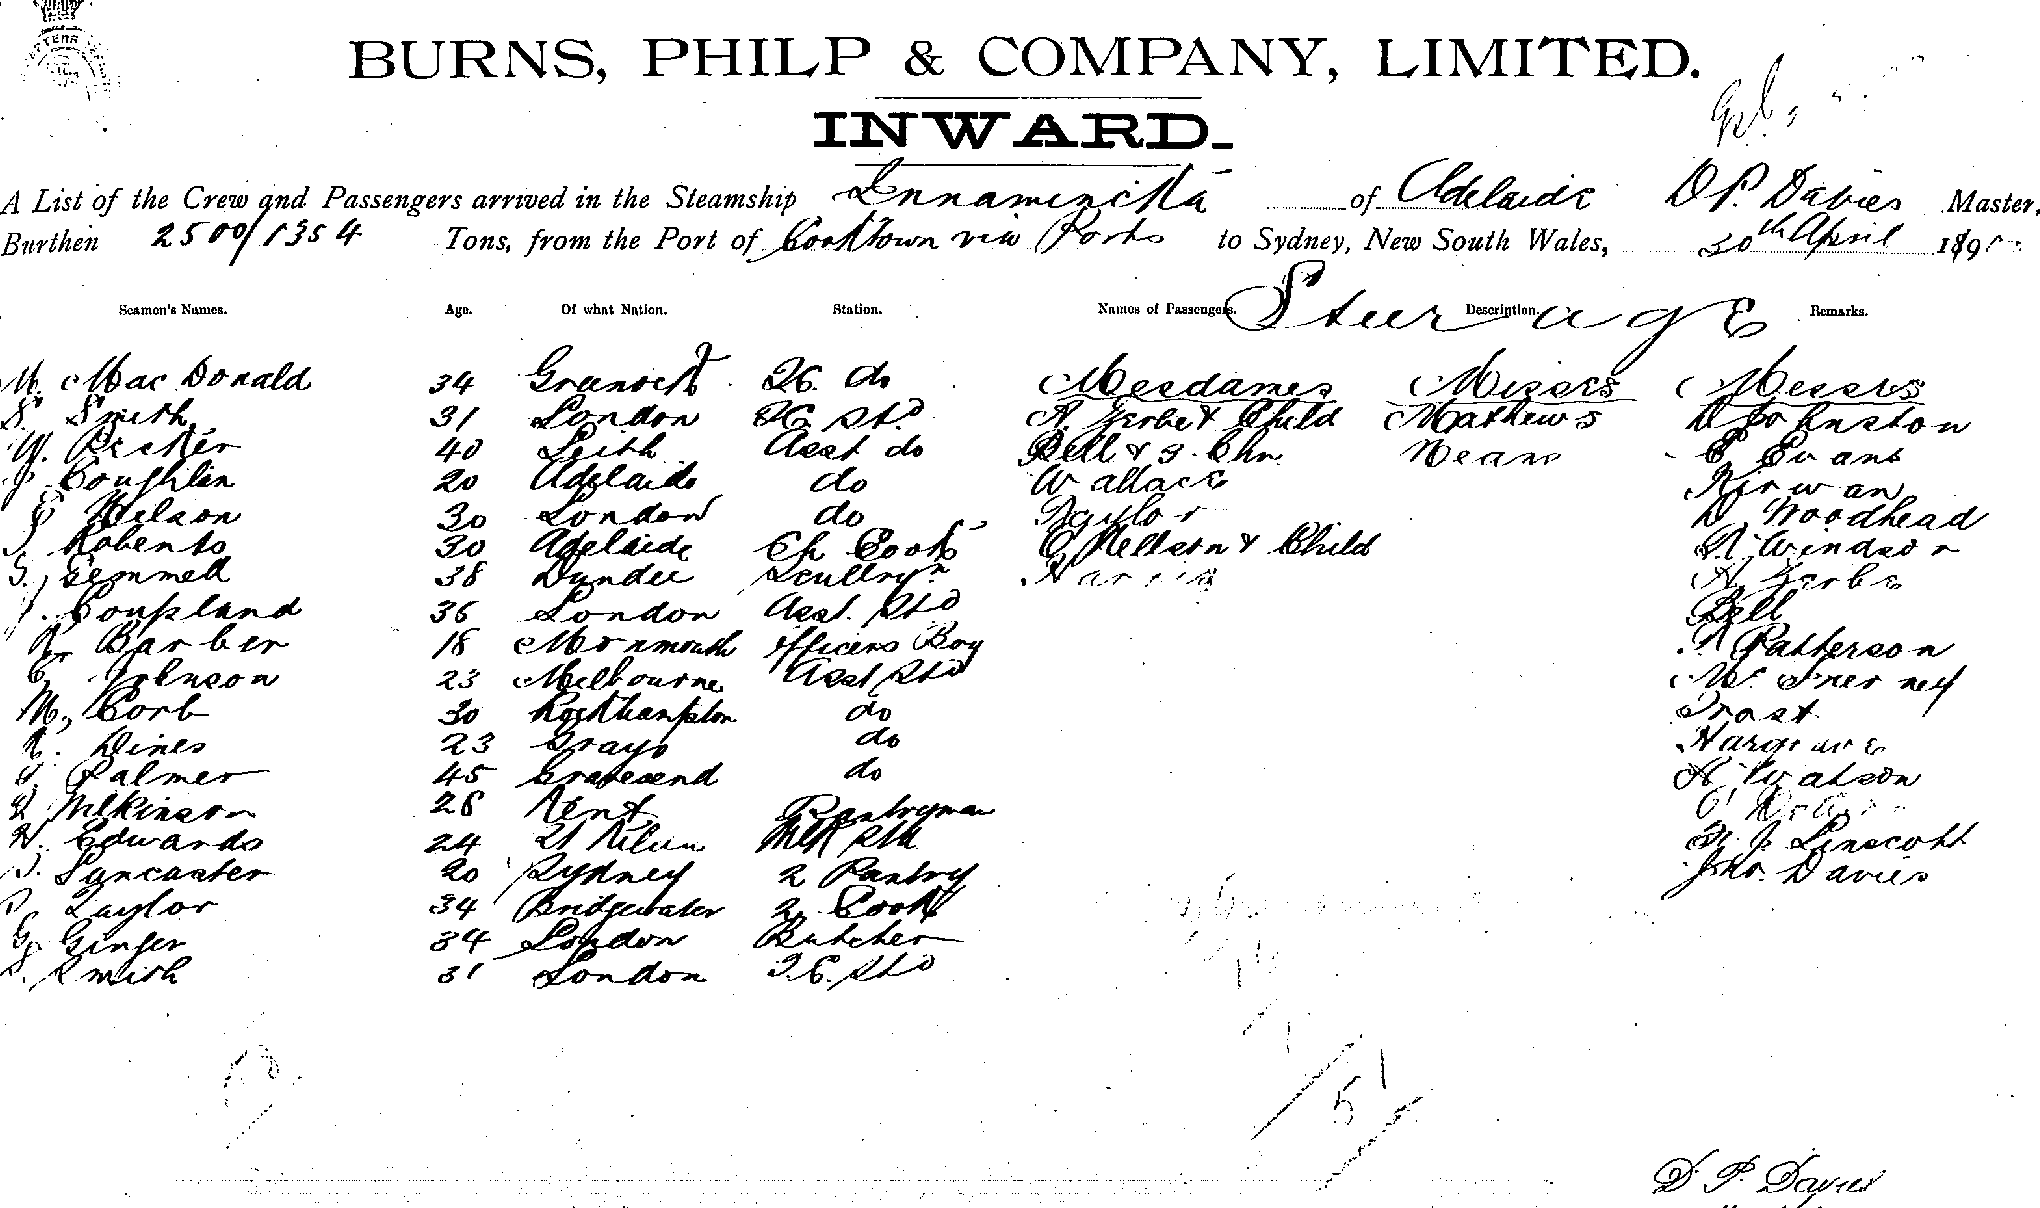 BURNS, PHILP & COMPANY, LIMITED.
INWARD.
A List of the Crew and Passengers arrived in the Steamship Innamincka of Adelaide D P. Davies Master,
Burthen 2500/1354 Tons, from the Port of Cooktown via Ports to Sydney, New South Wales, 30th April 189
Seamen's Names. Age. Of what Nation. Station. Names of Passengers. Description. Remarks.
Steerage
M. MacDonald 34 Greenock do Mesdames Misses Messrs
S. Smith 31 London Std A. Gerbe & Child Mathews D Johnston
W. Becker 40 Leith Asst do Bell & 3 Chn. Means E Evans
J Coughlin 20 Adelaide do Wallace Kirwan
E Nelson 30 London do Naylor D. Woodhead
Roberts 30 Adelaide Ch Cook C Neilson & Child Windsor
Gemmell 38 Dundee Sculleryn Harris A. Gerbe
Coupland 36 London Asst. Std Bell
Barber 18 Monmouth Officers Boy Patterson
Johnson 23 Melbourne Asst Std
M, Corb 30 Rockhampton do Trost
Dines 23 Grays do Hargrave
Palmer 45 Gravesend do Watson
Wilkinson 28 Kent Pantryman
Edwards 24 St Kilda Linscott
Lancaster 20 Sydney 2 Pantry Jno. Davies
Taylor 34 Bridgewater 2 Cook
G Ginger 34 London Butcher
S. Smith 31 London Std
1/5/
D. P. Davies